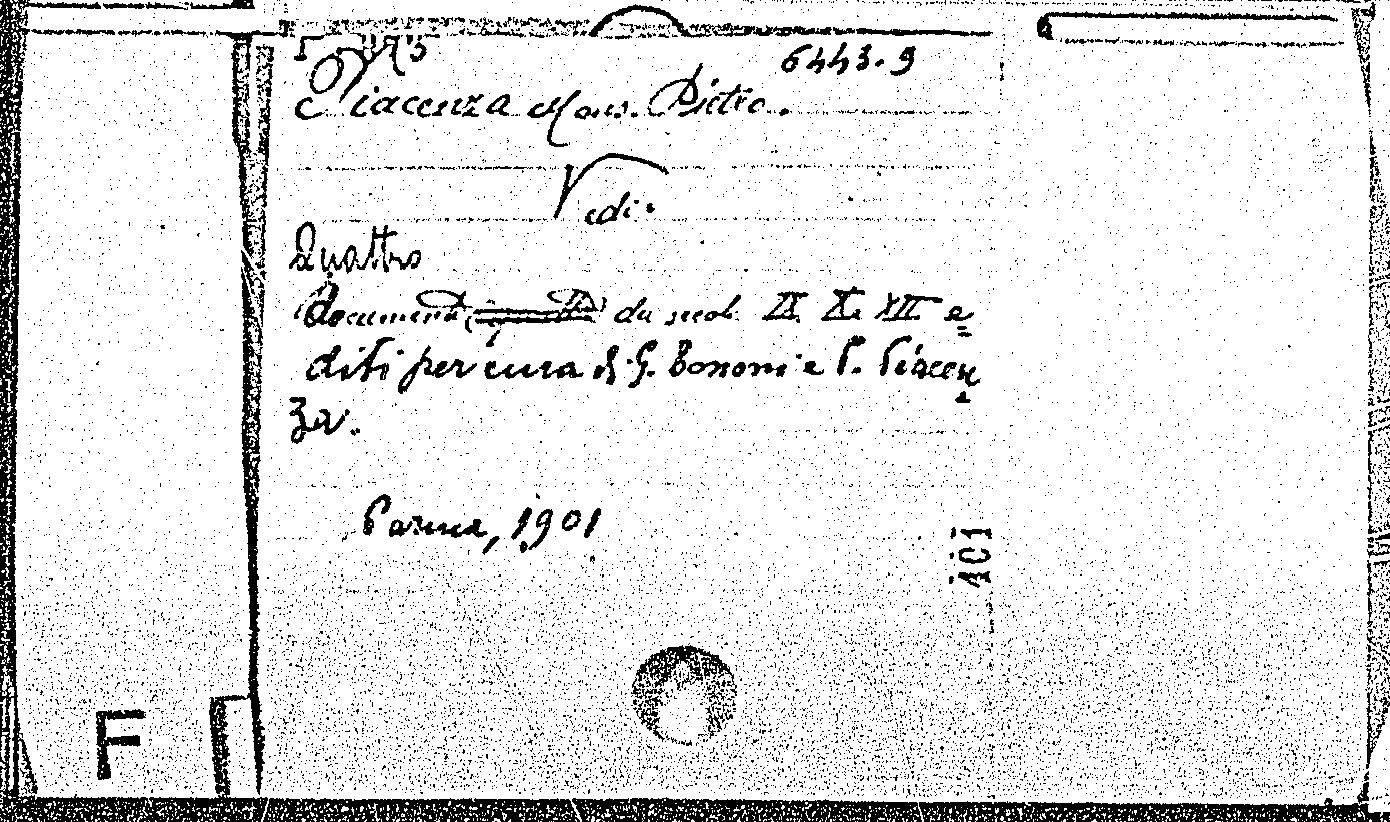 6443.9
Piacenza Mons. Pietro.
Vedi.
Quattro
documenti dei secol. IX. X. XII e
diti per cura di G. Bonomi e P. Piacen
za.
Parma, 1901
401
F